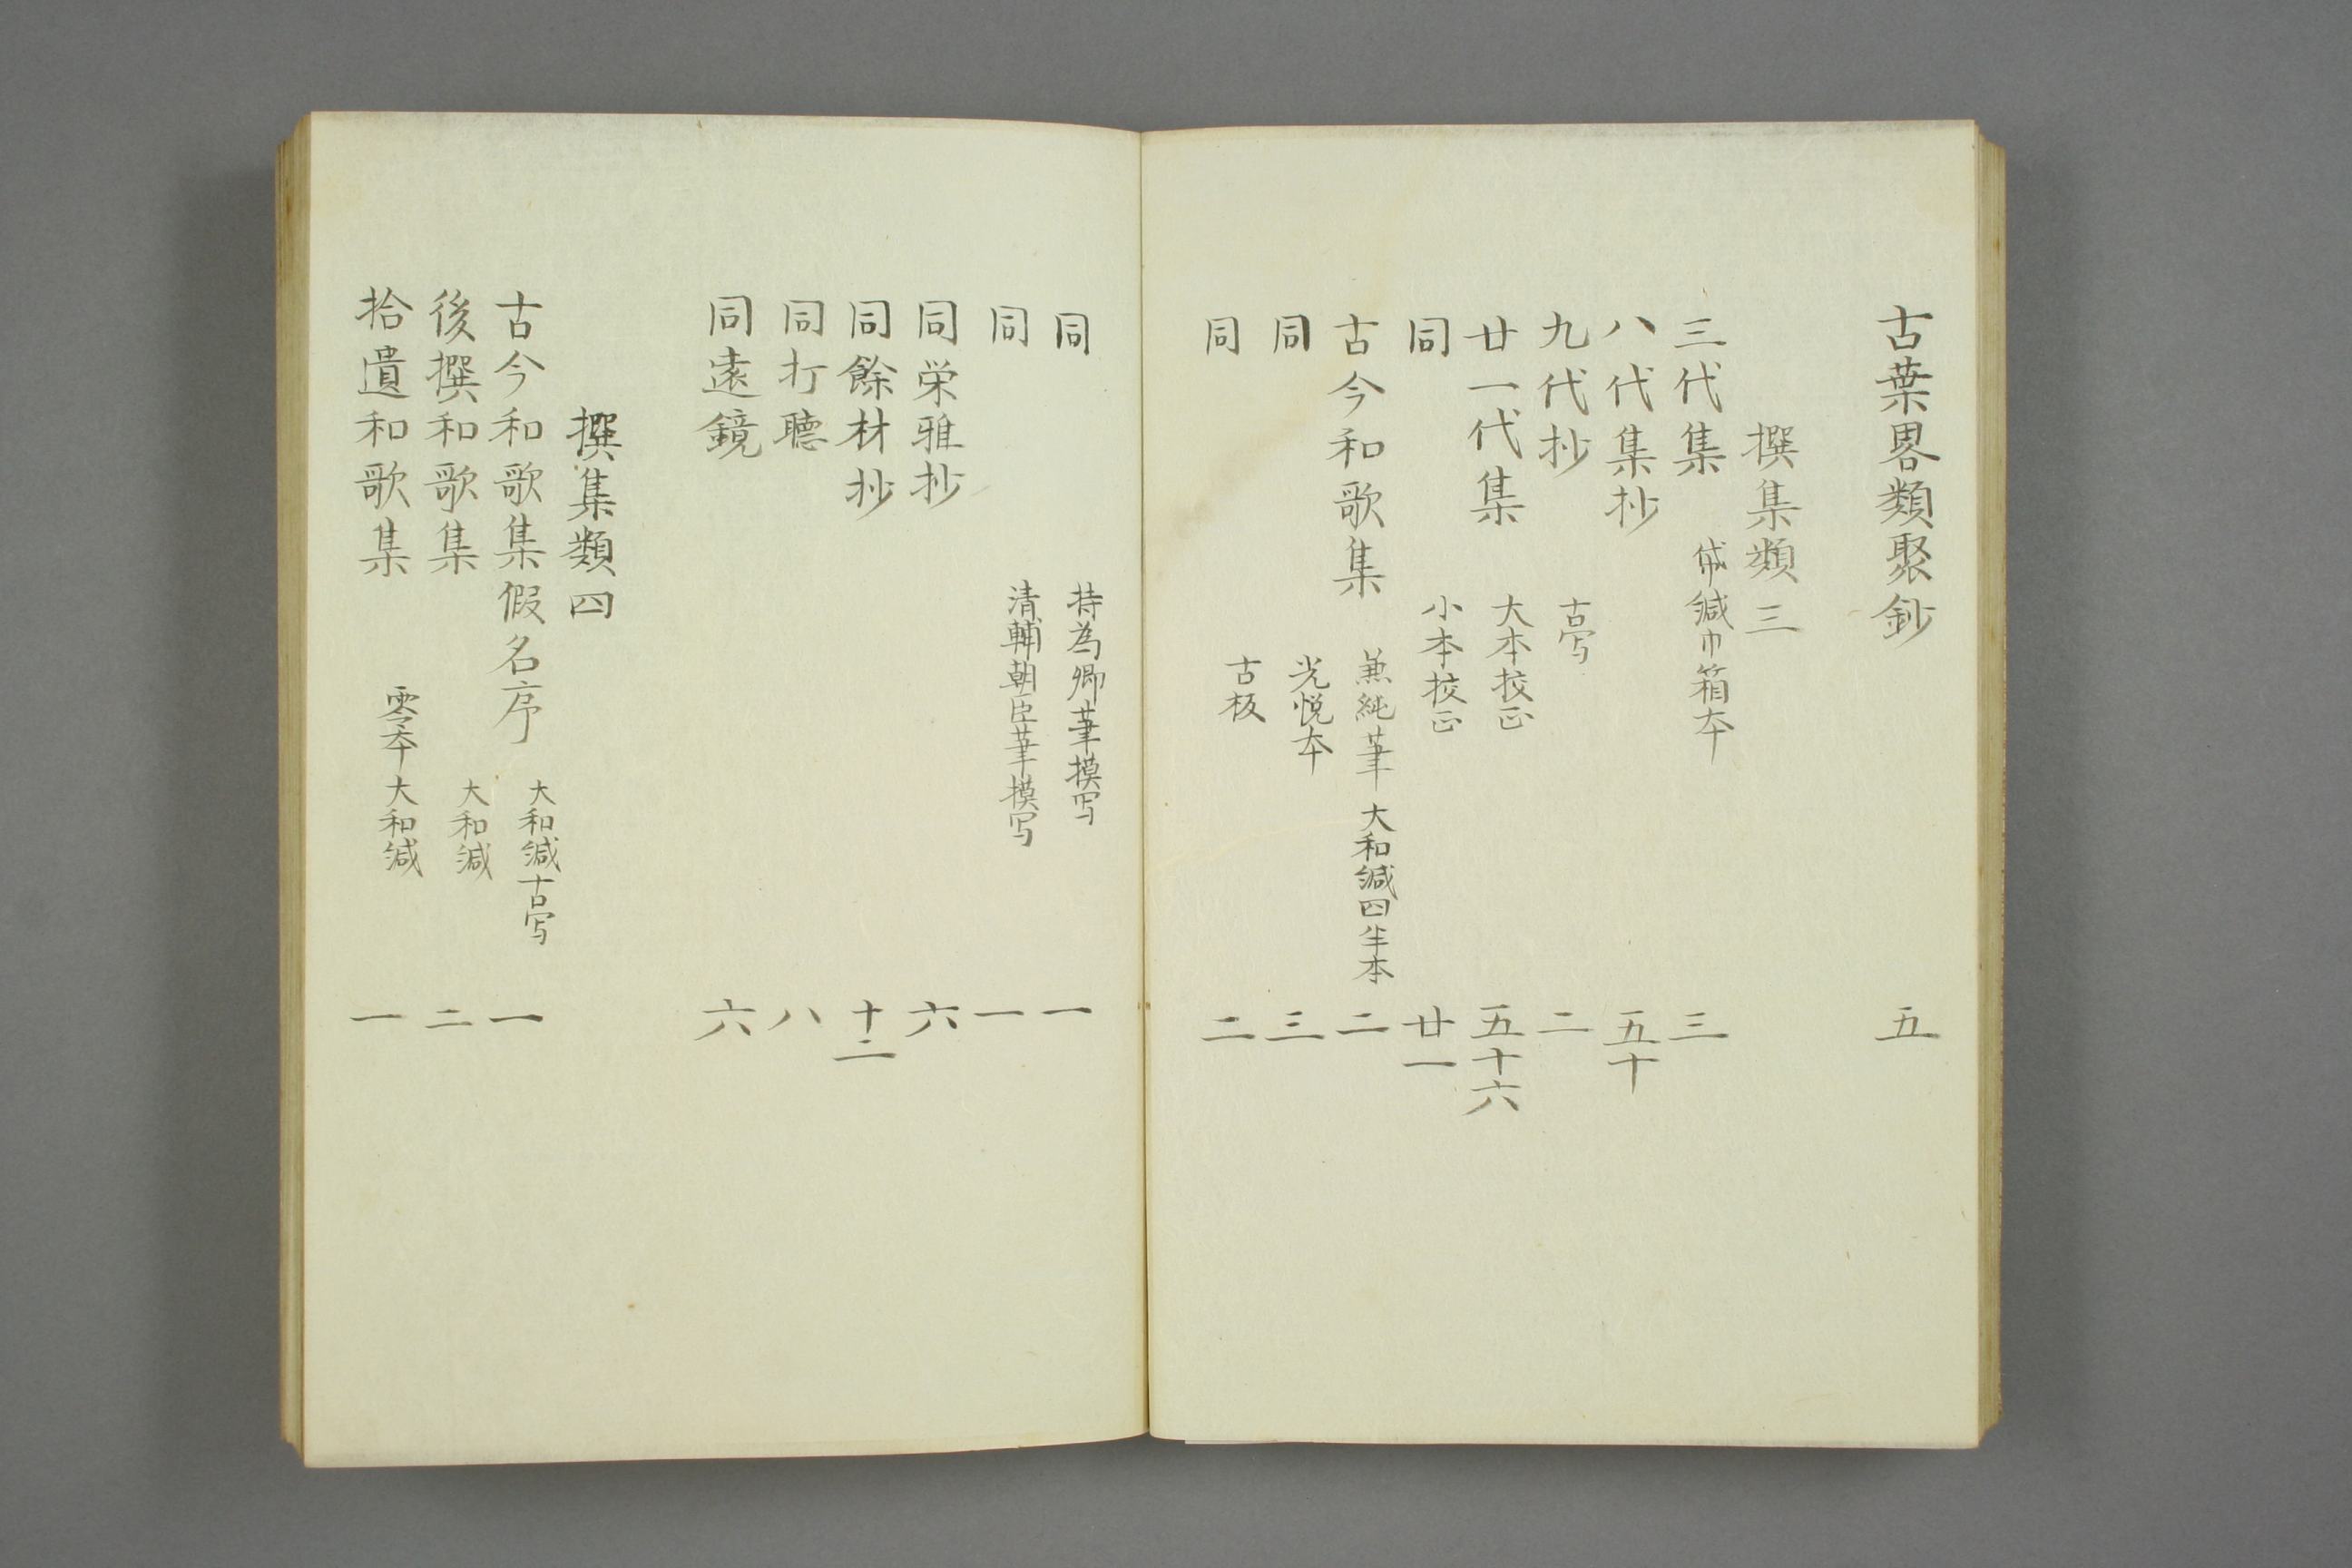 古葉畧類聚鈔 五
撰集類三
三代集 帒緘巾箱本 三
八代集抄 五十
九代抄 古写 二
廿一代集 大本挍正 五十六
同 小本挍正 廿一
古今和歌集 兼純筆 大和緘四半本 二
同 光悦本 三
同 古板 二
同 持為卿筆摸写 一
同 清輔朝臣筆摸写 一
同栄雅抄 六
同餘材抄 十二
同打聽 八
同遠鏡 六
撰集類四
古今和歌集假名序 大和緘古写 一
後撰和歌集 大和緘 二
拾遺和歌集 零本 大和緘 一